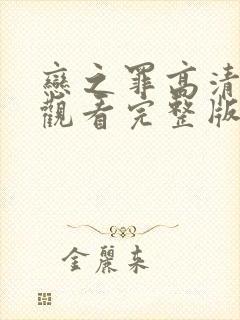 戀之罪高清
觀看完整版
金麗来